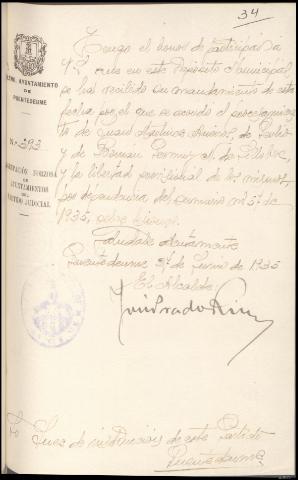 34
ILTMO. AYUNTAMIENTO
DE
PUENTEDEUME
N.º 393
AGRUPACIÓN FORZOSA
DE
AYUNTAMIENTOS
DEL
PARTIDO JUDICIAL
Tengo el honor de participar á
V.S. que en este Depósito Municipal,
se ha recibido un mandamiento de esta
fecha por el que se acordó el procesamien
to de Juan Martínez de
y de Germán de
y la libertad provisional de los mismos
por dependencia del sumario nº 51 de
1935, sobre
Salúdale atentamente
Puentedeume de Junio de 1935
El Alcalde:
Sr. Juez de instrucción de este Partido
Puentedeume